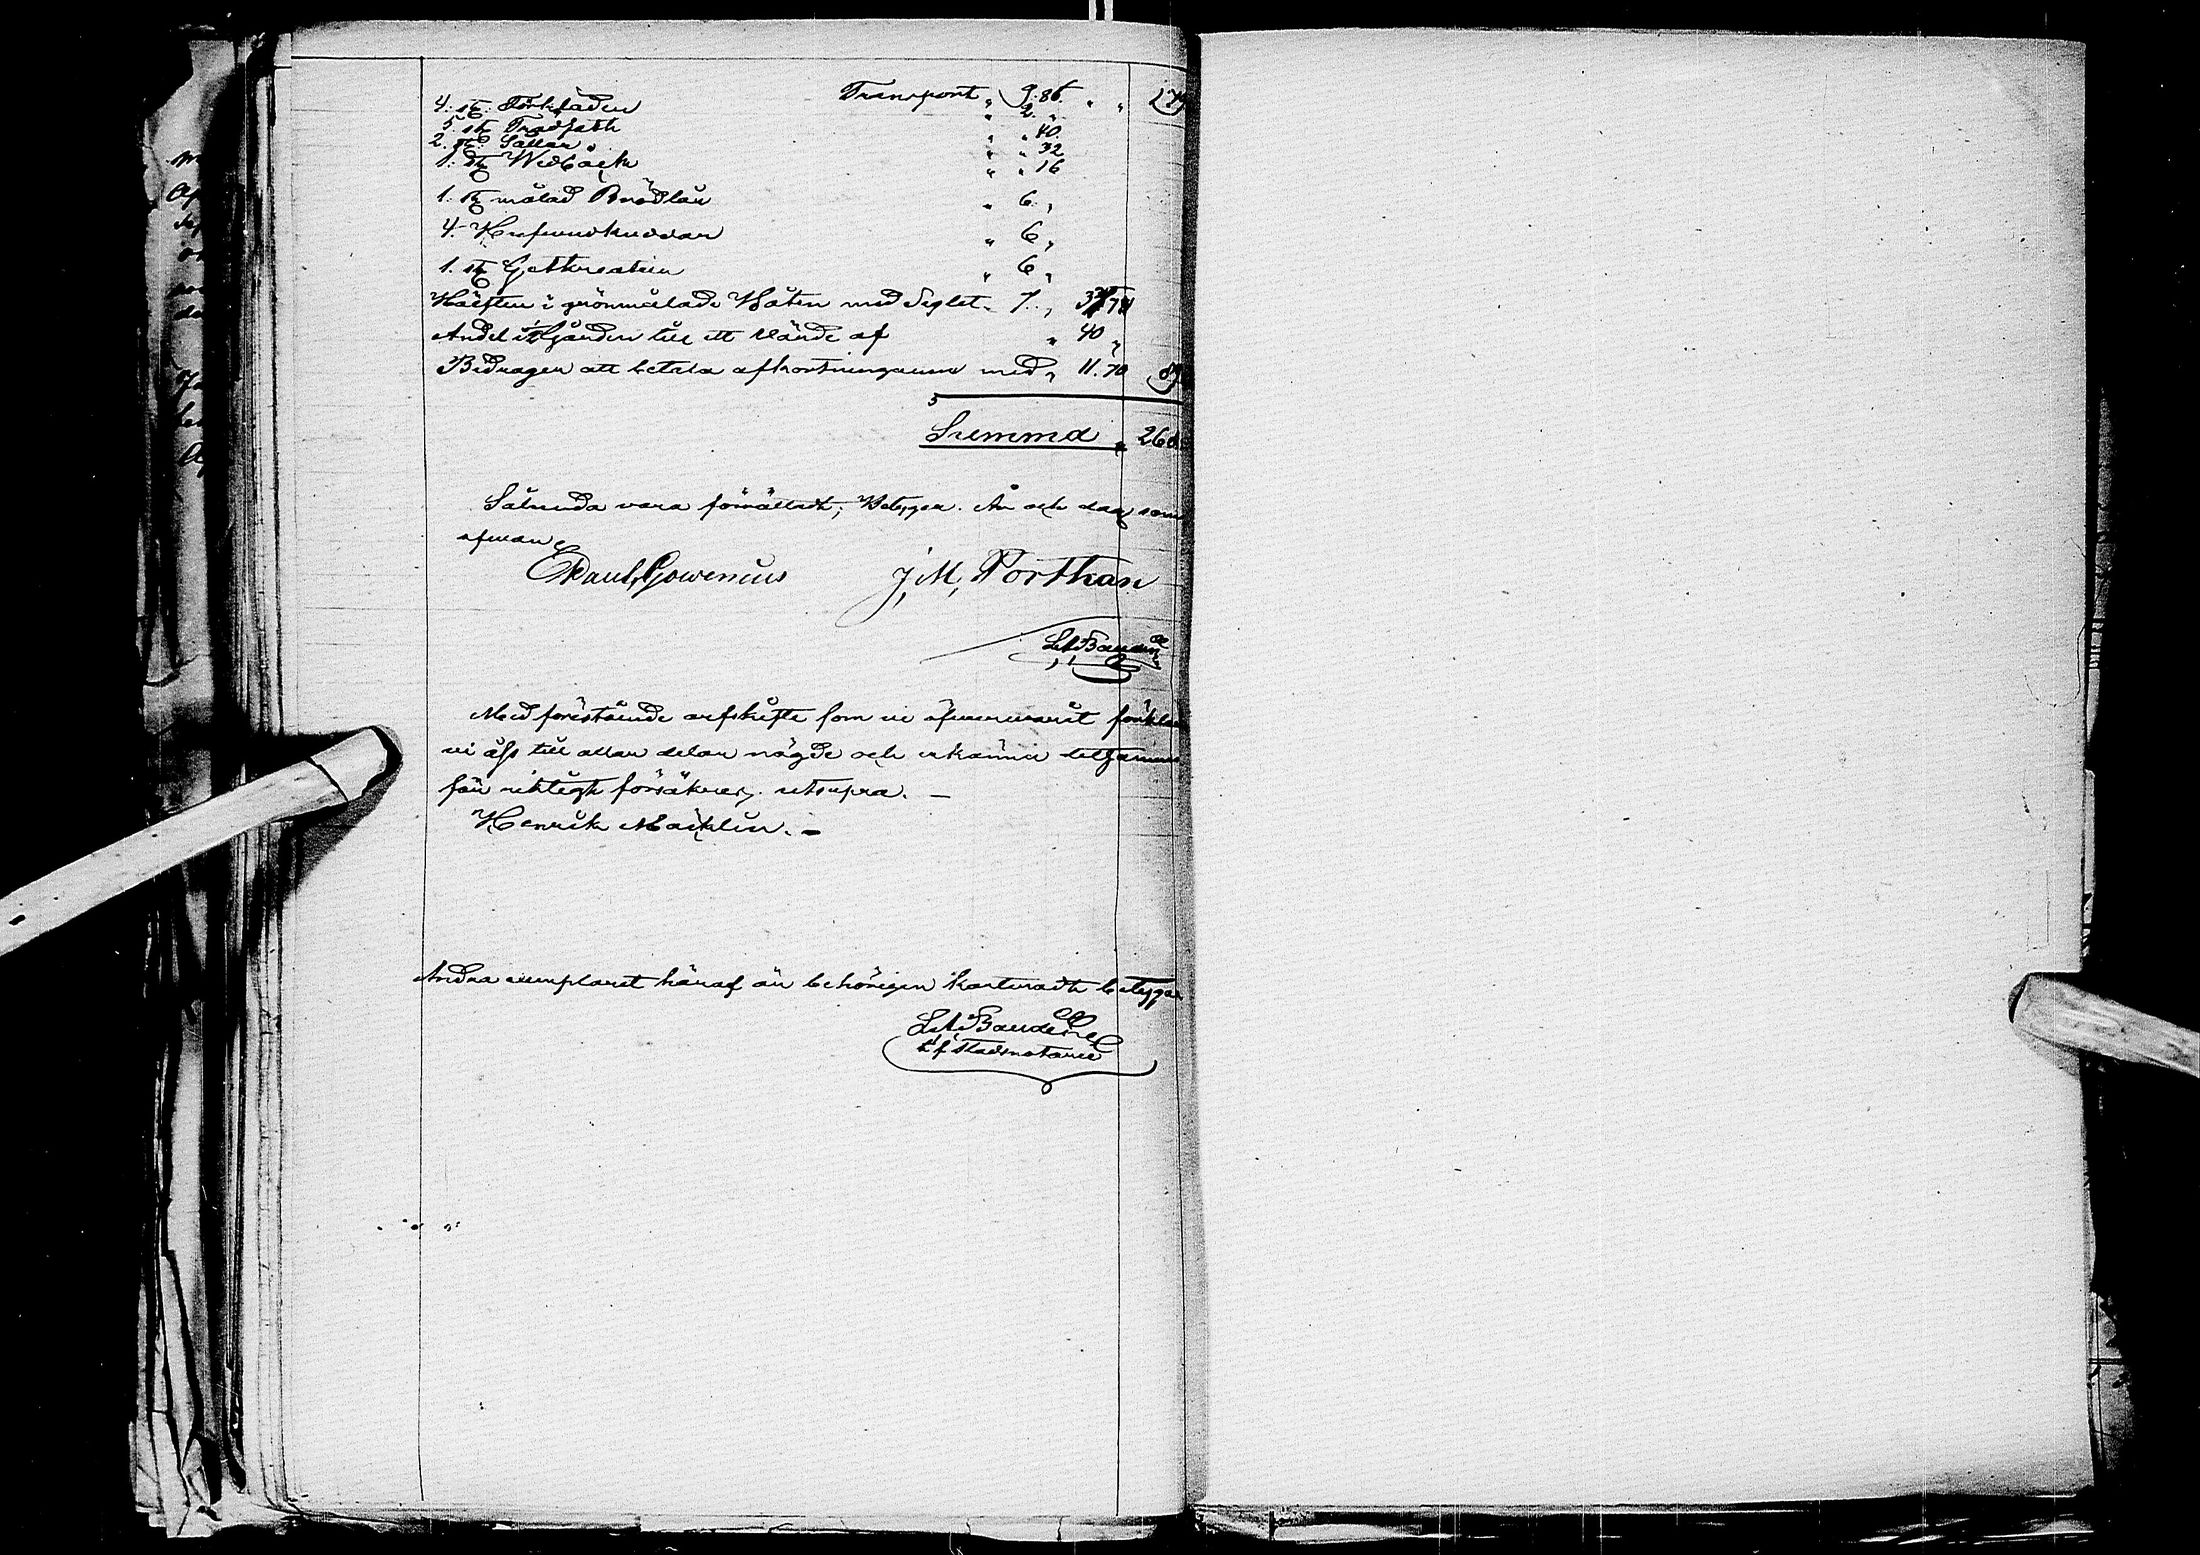 Transport „ 9. 86. „ „ 179
4. st. Törkladen „ 2. „
5. st Trädfath „ „ 40.
2. st. Sållar „ „ 32
1. st Wedbåck „ „ 16
1. st målad Brödlår „ 6. „
4. Hufvudkuddar „ 6 „
1. st Gettkreatur „ 6 „
Hälften i grönmålade Båten med Seglet „ 7. „ 37 74
Andel i Gården till ett värde af „ 40 „
Bidrager att betala afkortningarne med „ 11. 70 89
Summa „ 268
Sålunda vara förrättadt, Betygar. År och dag som
ofvan
Paul Gowenius J, M, Porthan
L A Bauden
Med förestående arfskifte som vi öfvervarit förklara
vi oss till allar delar nögde och erkänna detsamma
för riktigt försäkrar, utsupra. —
Henrik Mäcklin. —
Andra exemplaret häraf är behörigen karteradt betygar
L A Bauden
t f stadsnotarie